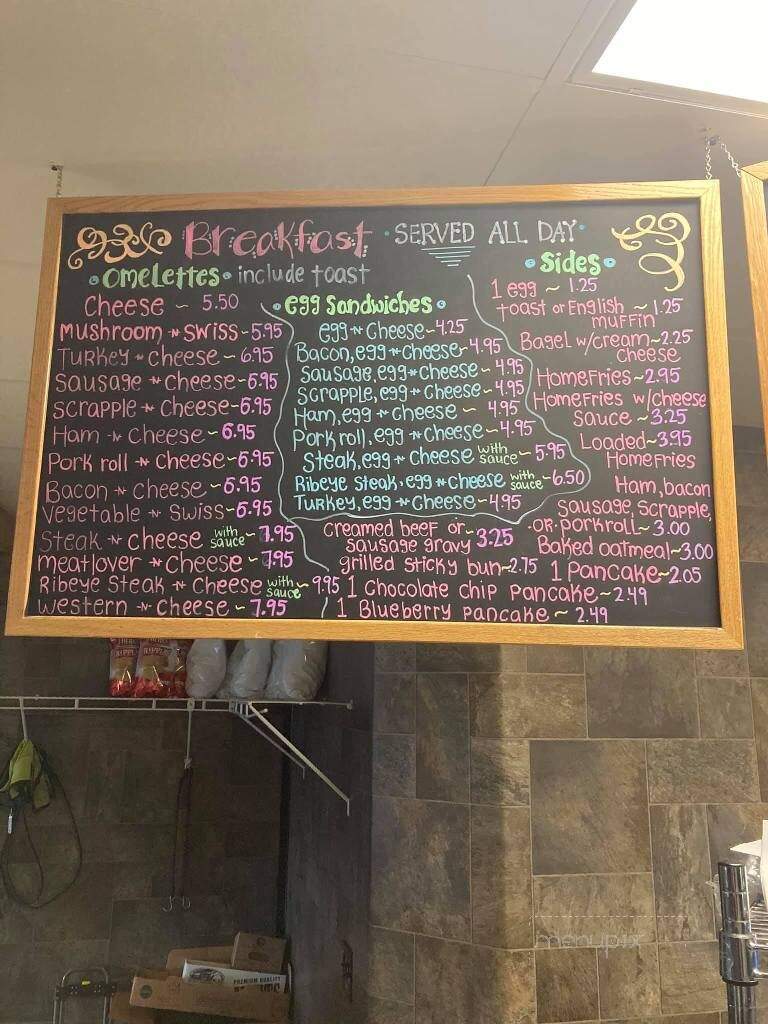 Breakfast · SERVED ALL DAY ·
• Omelettes • include toast
Cheese ~ 5.50
Mushroom -n- Swiss - 5.95
Turkey -n- Cheese - 6.95
Sausage -n- Cheese - 6.95
Scrapple -n- Cheese - 6.95
Ham -n- Cheese ~ 6.95
Pork roll -n- Cheese - 6.95
Bacon -n- Cheese - 6.95
Vegetable -n- Swiss - 6.95
Steak -n- Cheese with sauce - 7.95
meatlover -n- Cheese - 7.95
Ribeye Steak -n- Cheese with sauce ~ 9.95
Western -n- Cheese ~ 7.95
• Egg Sandwiches •
egg -n- Cheese ~ 4.25
Bacon, egg -n- Cheese - 4.95
Sausage, egg -n- Cheese ~ 4.95
Scrapple, egg -n- Cheese ~ 4.95
Ham, egg -n- Cheese ~ 4.95
Pork roll, egg -n- Cheese ~ 4.95
Steak, egg -n- Cheese with sauce ~ 5.95
Ribeye Steak, egg -n- Cheese with sauce - 6.50
Turkey, egg -n- Cheese ~ 4.95
• Sides •
1 egg ~ 1.25
toast or English muffin ~ 1.25
Bagel w/cream cheese ~ 2.25
Homefries ~ 2.95
Homefries w/cheese
Sauce ~ 3.25
Loaded ~ 3.95
Homefries
Ham, bacon
Sausage, Scrapple,
-or- porkroll ~ 3.00
Baked oatmeal ~ 3.00
Creamed beef or
sausage gravy 3.25
grilled sticky bun - 2.75
1 pancake ~ 2.05
1 Chocolate chip pancake ~ 2.49
1 Blueberry pancake ~ 2.49
RIPPL
RIPPL
PREMIUM QUALITY
menupix